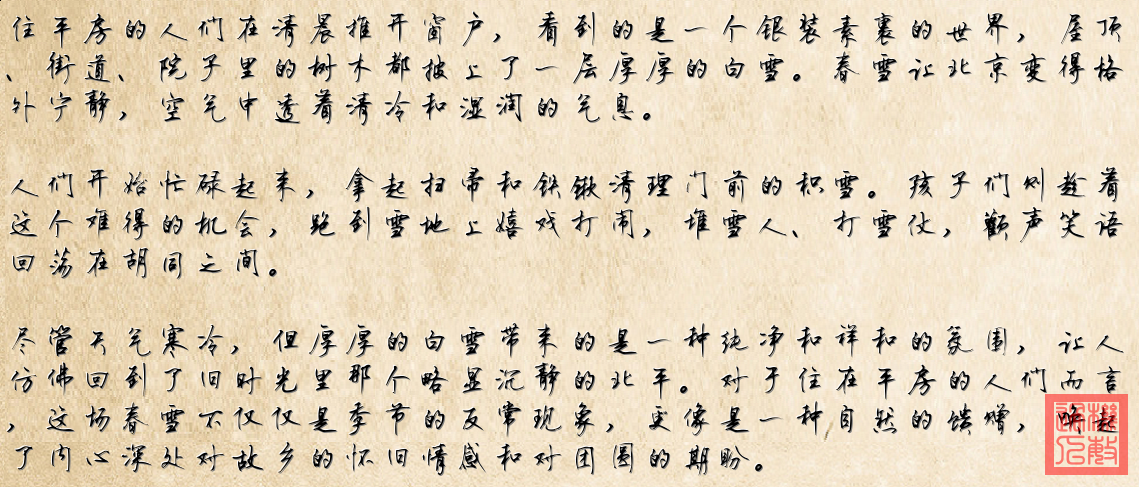 住平房的人们在清晨推开窗户，看到的是一个银装素裹的世界，屋顶
、街道、院子里的树木都披上了一层厚厚的白雪。春雪让北京变得格
外宁静，空气中透着清冷和湿润的气息。
人们开始忙碌起来，拿起扫帚和铁锹清理门前的积雪。孩子们则趁着
这个难得的机会，跑到雪地上嬉戏打闹，堆雪人、打雪仗，颧声笑语
回荡在胡同之间。
尽管天气寒冷，但厚厚的白雪带来的是一种纯净和祥和的氛围，让人
仿佛回到了旧时光里那个略显沉静的北平。对于住在平房的人们而言
，这场春雪不仅仅是季节的反常现象，更像是一种自然的馈赠，唤起
了内心深处对故乡的怀旧情感和对团圆的期盼。